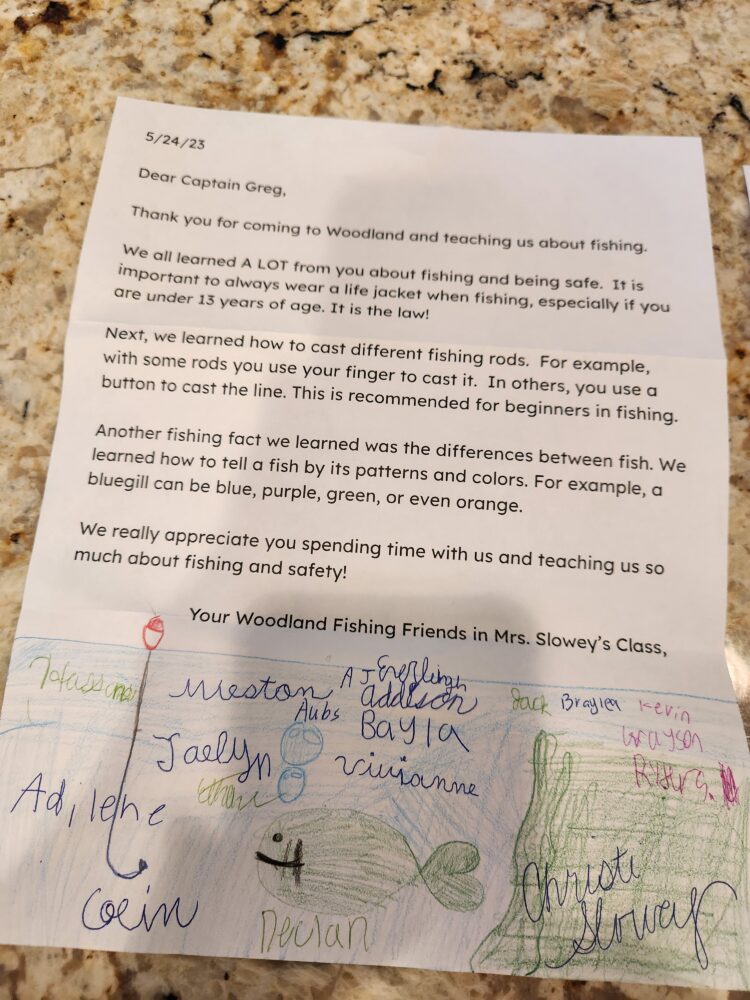 5/24/23
Dear Captain Greg,
Thank you for coming to Woodland and teaching us about fishing.
We all learned A LOT from you about fishing and being safe. It is
important to always wear a life jacket when fishing, especially if you
are under 13 years of age. It is the law!
Next, we learned how to cast different fishing rods. For example,
with some rods you use your finger to cast it. In others, you use a
button to cast the line. This is recommended for beginners in fishing.
Another fishing fact we learned was the differences between fish. We
learned how to tell a fish by its patterns and colors. For example, a
bluegill can be blue, purple, green, or even orange.
We really appreciate you spending time with us and teaching us so
much about fishing and safety!
Your Woodland Fishing Friends in Mrs. Slowey's Class,
Weston AJ
Addison Jack Braylen Kevin
Aubs Bayla Grayson
Jaelyn Vivianne
Adilene
Declan
Christi
Slowey